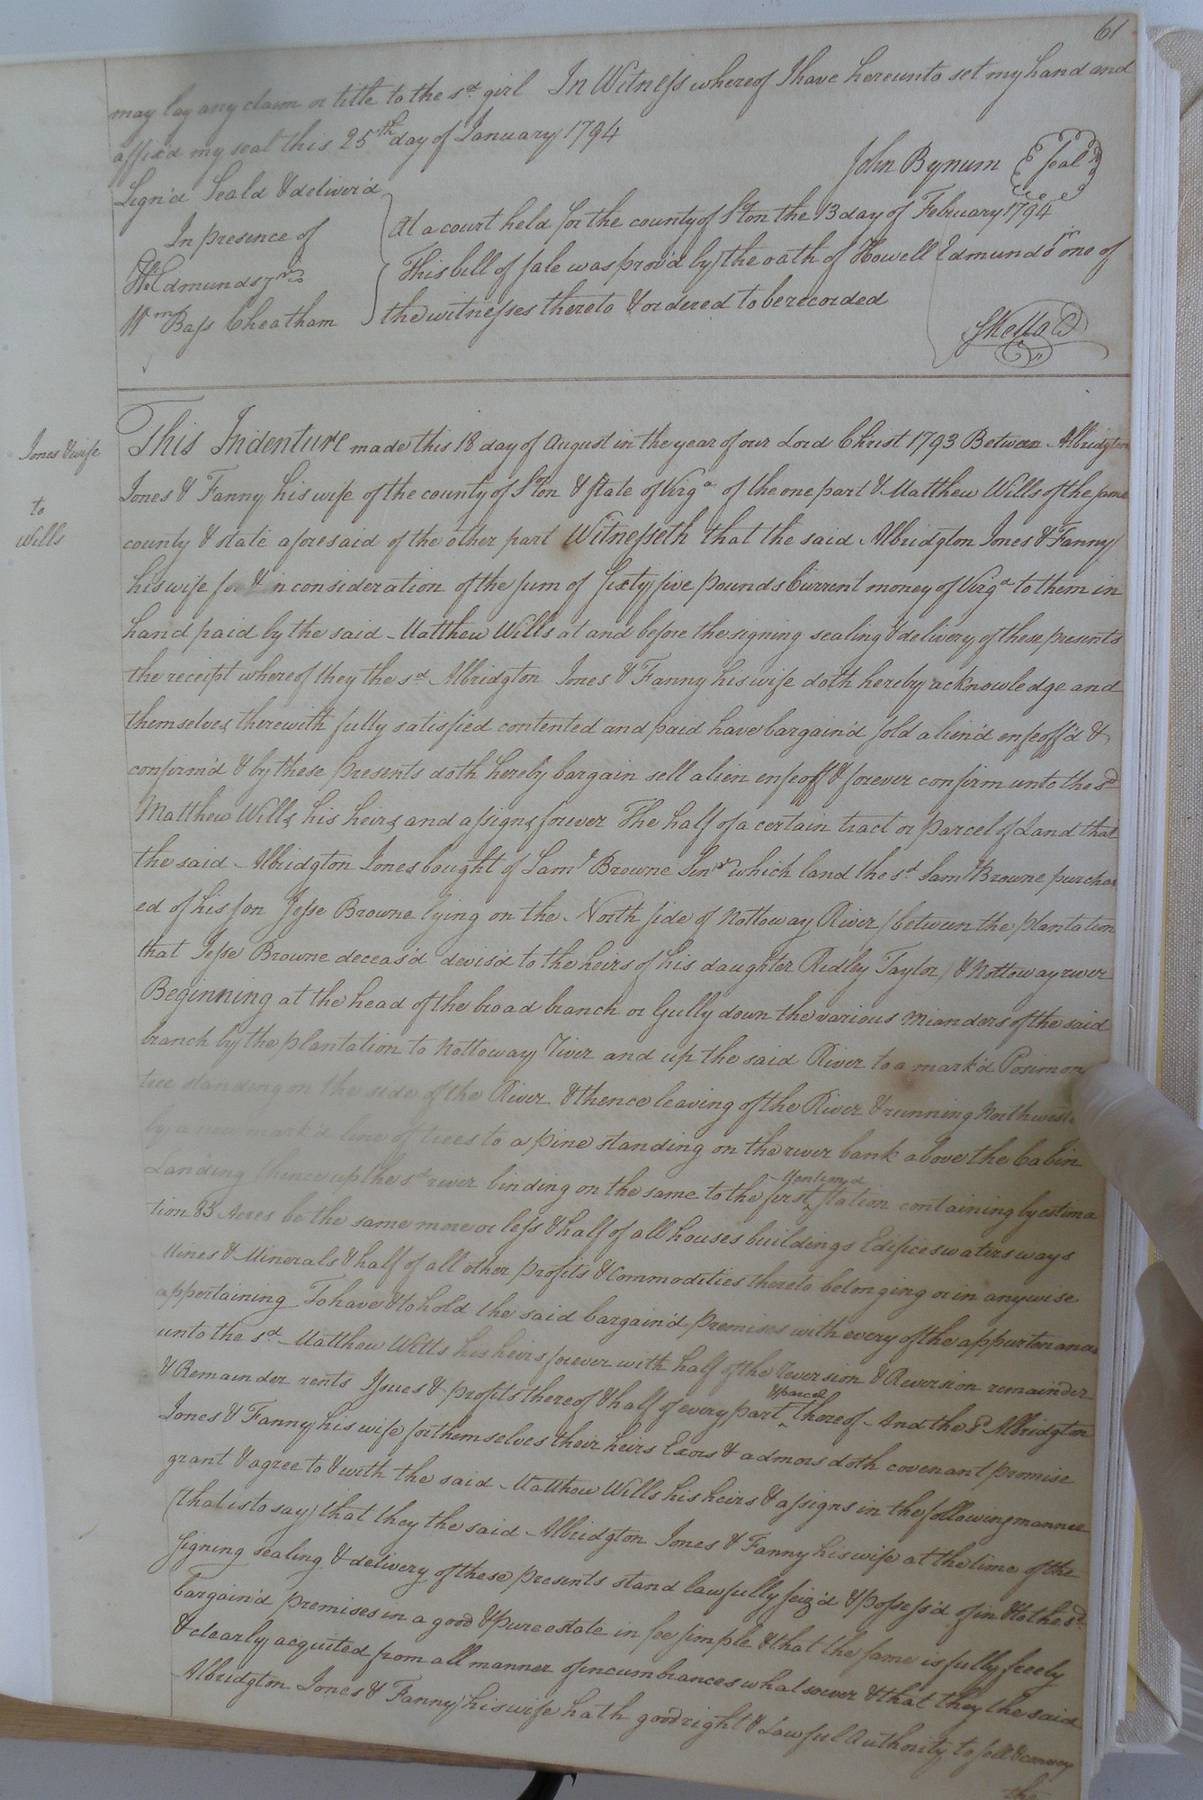 61
may lay any claim or title to the sd. girl In Witness whereof I have hereunto set my hand and
affixd my seal this 25th day of January 1794
John Bynum Seal
Sign'd Seald & deliver'd
In presence of
Edmunds
Wm Bass Cheatham
At a court held for the county of Ston the 13 day of February 1794
This bill of sale was prov'd by the oath of Howell Edmunds Jr one of
the witnesses thereto & ordered to be recorded
Jones & wife
to
Wills
This Indenture made this 18 day of August in the year of our Lord Christ 1793 Between Albridgton
Jones & Fanny his wife of the county of Ston & state of Virga of the one part & Matthew Wills of the same
county & state aforesaid of the other part Witnesseth that the said Albridgton Jones & Fanny
his wife for & in consideration of the sum of sixty five pounds Current money of Virga to them in
hand paid by the said Matthew Wills at and before the signing sealing & delivery of these presents
the receipt whereof they the sd Albridgton Jones & Fanny his wife doth hereby acknowledge and
themselves therewith fully satisfied contented and paid have bargain'd sold alien'd enfeoff'd &
confirm'd & by these presents doth hereby bargain sell alien enfeoff & forever confirm unto the sd
Matthew Wills his heirs and assigns forever The half of a certain tract or parcel of Land that
the said Albridgton Jones bought of Saml Browne Senr which land the sd Saml Browne purchas
ed of his son Jesse Browne lying on the North side of Nottoway River (between the plantation
that Jesse Browne deceas'd devis'd to the heirs of his daughter Ridley Taylor) & Nottoway river
Beginning at the head of the broad branch or Gully down the various Mianders of the said
branch by the plantation to Nottoway River and up the said River to a mark'd Posimon
tree standing on the side of the River & thence leaving of the River & running Northwest
by a new mark'd line of trees to a pine standing on the river bank above the Cabin
Landing thence up the sd river binding on the same to the first Mention'd station containing by estima
tion 83 Acres be the same more or less & half of all houses buildings Edifices waters ways
Mines & Minerals & half of all other profits & Commodities thereto belonging or in anywise
appertaining To have & to hold the said bargain'd premises with every of the appurtenances
unto the sd Matthew Wills his heirs forever with half of the reversion & Reversion remainder
& Remainder rents Issues & profits thereof & half of every part & parcel thereof And the sd Albridgton
Jones & Fanny his wife for themselves their heirs Exors & admors doth covenant promise
grant & agree to & with the said Matthew Wills his heirs & assigns in the following manner
(that is to say) that they the said Albridgton Jones & Fanny his wife at the time of the
signing sealing & delivery of these presents stand lawfully seiz'd & possess'd of in & to the sd
bargain'd premises in a good & pure estate in fee simple & that the same is fully freely
& clearly acquited from all manner of incumbrances whatsoever & that they the said
Albridgton Jones & Fanny his wife hath good right & Lawful Authority to sell & convey
the